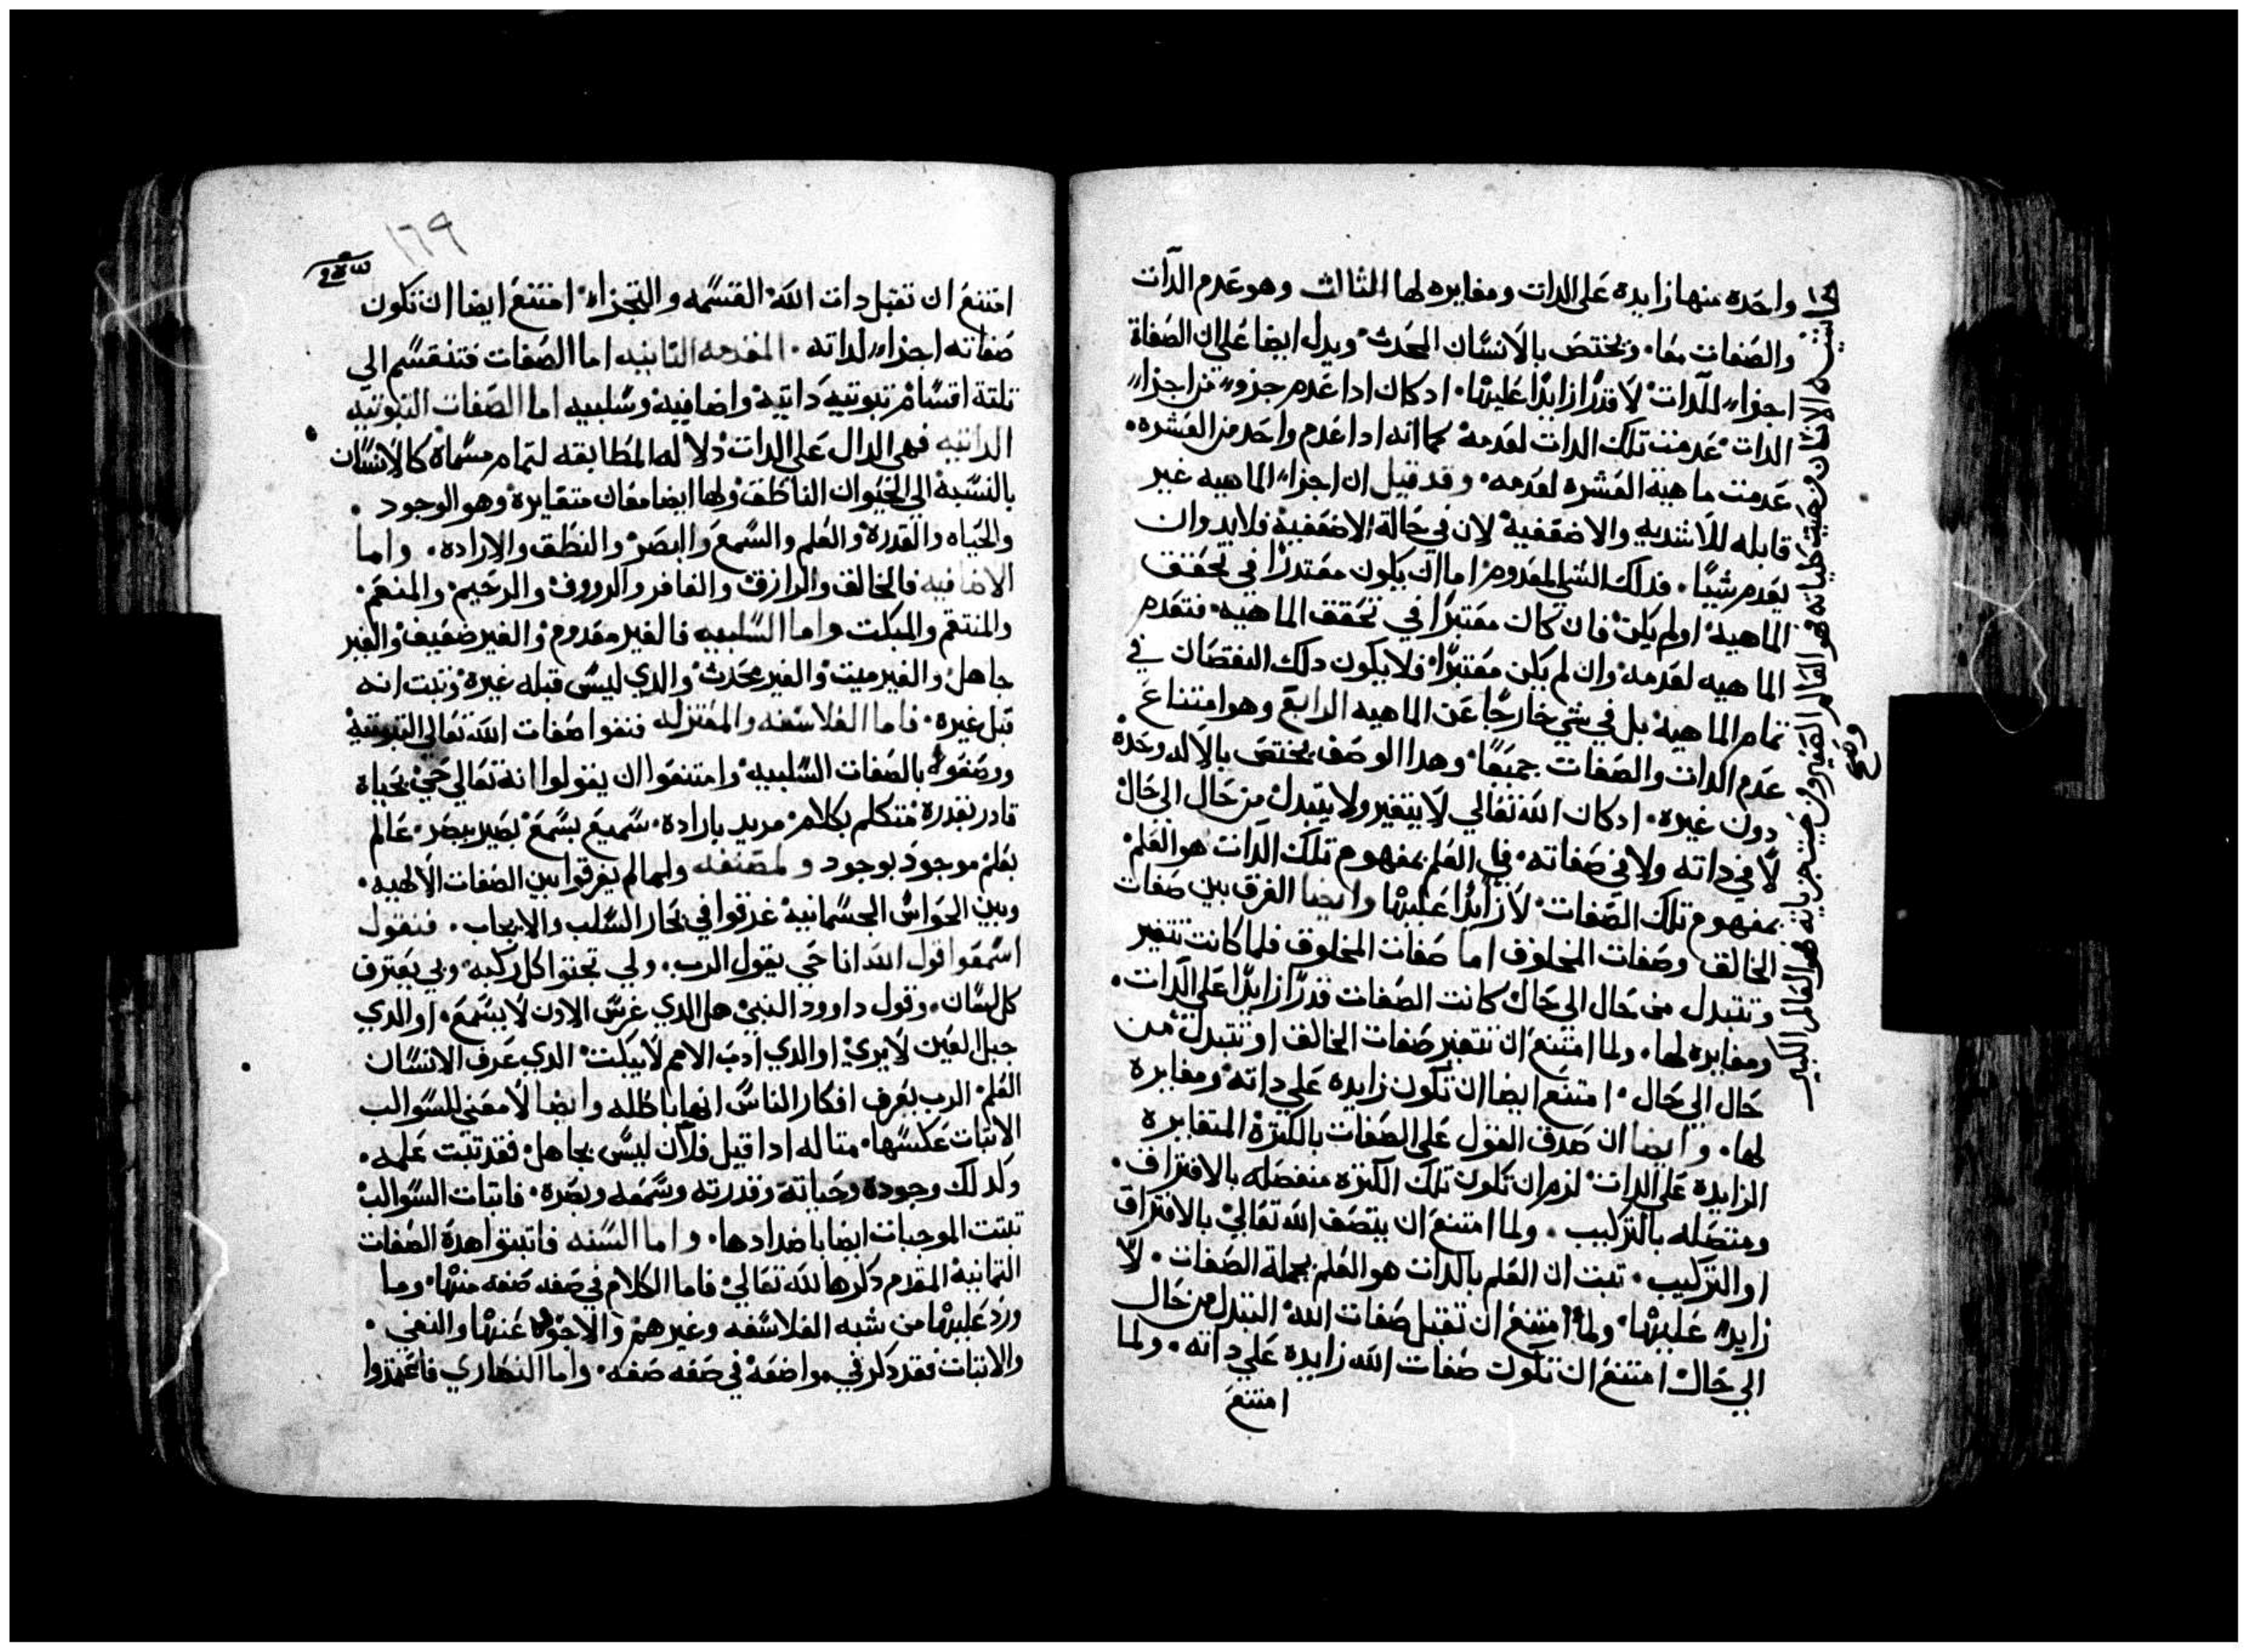 واحده منها زايده على الدات ومغايره لها الثالث وهو عدم الدآت
والصفات معا. ويختص بالانسان المحدث ويدل ايضا على ان الصفاة
اجزاء للدات لا قدرا زايدا عليها. ادكان ادا عدم جزو من اجزاء
الدات عدمت تلك الدات لعدمه كما انه ادا عدم واحد من العشره.
عدمت ماهية العشره لعدمه. وقد قيل ان اجزاء الماهيه غير
قابله للاشديه والاضعفيه لان في حالة الاضعفيه فلابد وان
يعدم شيئا. فدلك الشي المعدوم اما ان يكون معتدرا في تحقق
الماهيه اولم يكن فان كان معتبرا في تحقق الماهيه. فتعدم
الماهيه لعدمه وان لم يكن معتبرا فلا يكون دلك النقصان في
تمام الماهيه بل في شي خارجا عن الماهيه الرابع وهو امتناع
عدم الدات والصفات جميعا. وهدا الوصف يختص بالاله وحده
دون غيره. ادكان الله تعالي لا يتغير ولا يتبدل من حال الي حال
لا في داته ولا في صفاته. فان العلم بمفهوم تلك الدات هو العلم
بمفهوم تلك الصفات لا زايدا عليها وايضا الفرق بين صفات
الخالق وصفات المخلوق اما صفات المخلوق فلما كانت تتغير
وتتبدل من حال الي حال كانت الصفات قدرا زايدا على الدات.
ومغايره لها. ولما امتنع ان تتغير صفات الخالق او تتبدل من
حال الي حال. امتنع ايضا ان تكون زايده علي داته ومغايره
لها. وايضا ان صدق القول على الصفات بالكتره المتغايره
الزايده على الدات لزم ان تكون تلك الكتره منفصله بالافتراق.
ومتصله بالتركيب. ولما امتنع ان يتصف الله تعالي بالافتراق
او التركيب. تبت ان العلم بالدات هو العلم بجملة الصفات. لا
زايد عليها. ولما امتنع ان تقبل صفات الله التبدل من حال
الي حال امتنع ان تكون صفات الله زايده علي داته. ولما
امتنع
الانسان من حيث كلياته هو العالم الصغير ومن حيث جزياته هو العالم الكبير
١٦٩
امتنع ان تقبل دات الله القسمه والتجزاء امتنع ايضا ان تكون
صفاته اجزاء لداته. المقدمه التانيه اما الصفات فتنقسم الي
تلتة اقسام تبوتيه داتيه واضافيه وسلبيه اما الصفات التبوتيه
الداتيه فهي الدال علي الدات دلاله المطابقه لتمام مسماة كالانسان
بالنسبة الي الحيوان الناطق ولها ايضا معان متغايرة وهو الوجود.
والحياه والقدرة والعلم والسمع والبصر والنطق والاراده. واما
الاضافيه فالخالق والرازق والغافر والرووف والرحيم والمنعم.
والمنتقم والمبكت واما السلبيه فالغير معدوم والغير ضعيف والغير
جاهل والغير ميت والغير محدث والدي ليس قبله غيره وتبت انه
قبل غيره. فاما الفلاسفه والمعتزله فنفوا صفات الله تعالي التبوتيه
ووصفوه بالصفات السلبيه وامتنعوا ان يقولوا انه تعالي حي بحياة
قادر بقدرة متكلم بكلام. مريد بارادة. سميع بسمع بصير ببصر. عالم
بعلم موجود بوجود ولمصنفه ولما لم يفرقوا بين الصفات الالهيه.
وبين الحواس الجسمانيه غرقوا في بحار السلب والايجاب. فنقول
اسمعوا قول الله انا حي يقول الرب. ولي تجتوا كل ركبه وبي يعترف
كل لسان. وقول داوود النبي هل الدي غرس الادن لا يسمع. او الدي
جبل العين لا يري او الدي ادب الامم لا يبكت الدي عرف الانسان
العلم الرب يعرف افكار الناس انها باطله وايضا لا معني للسوالب
الا اتبات عكسها. متاله ادا قيل فلان ليس بجاهل فقد تبت علمه.
وكدلك وجوده وحياته وقدرته وسمعه وبصره. فاتبات السوالب
تتبت الموجبات ايضا باضدادها. واما السنه فاتبتوا هده الصفات
التمانية المقدم دكرها لله تعالي فاما الكلام في صفه صفه منها. وما
ورد عليها من شبه الفلاسفه وغيرهم والاجوبه عنها والنفي.
والاتبات فقد دكر في مواضعه في صفه صفه. واما النصاري فاعتمدوا